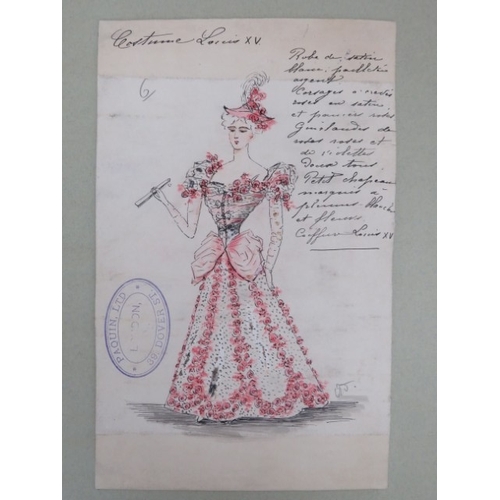 Costume Louis XV
6
Robe de satin
blanc pailletée
argent
Corsage à
roses en satin
et paniers roses
Guirlandes de
roses roses et
de
deux tons
Petit chapeau
marquis à
plumes
et fleurs
Coiffure Louis XV
PAQUIN, LTD
39 DOVER ST
LONDON